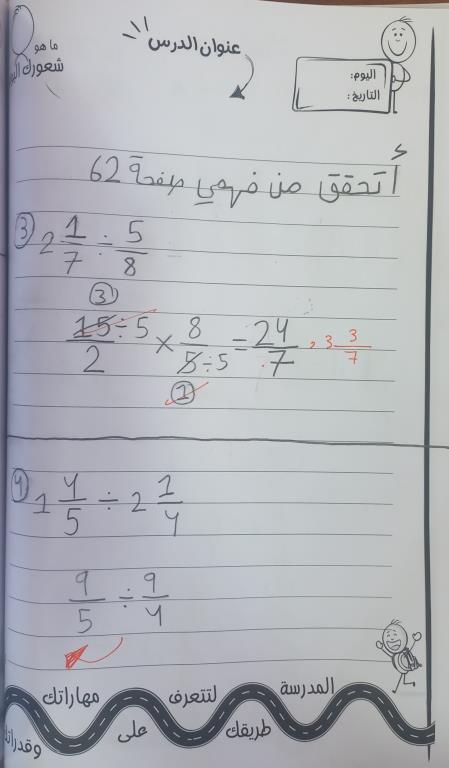 ما هو
شعورك اليوم
عنوان الدرس
اليوم:
التاريخ:
أتحقق من فهمي صفحة 62
③ 2 1/7 ÷ 5/8
③
15÷5/2 × 8/5÷5 = 24/7 , 3 3/7
①
④ 1 4/5 ÷ 2 1/4
9/5 ÷ 9/4
المدرسة
طريقك
لتتعرف
على
مهاراتك
وقدراتك